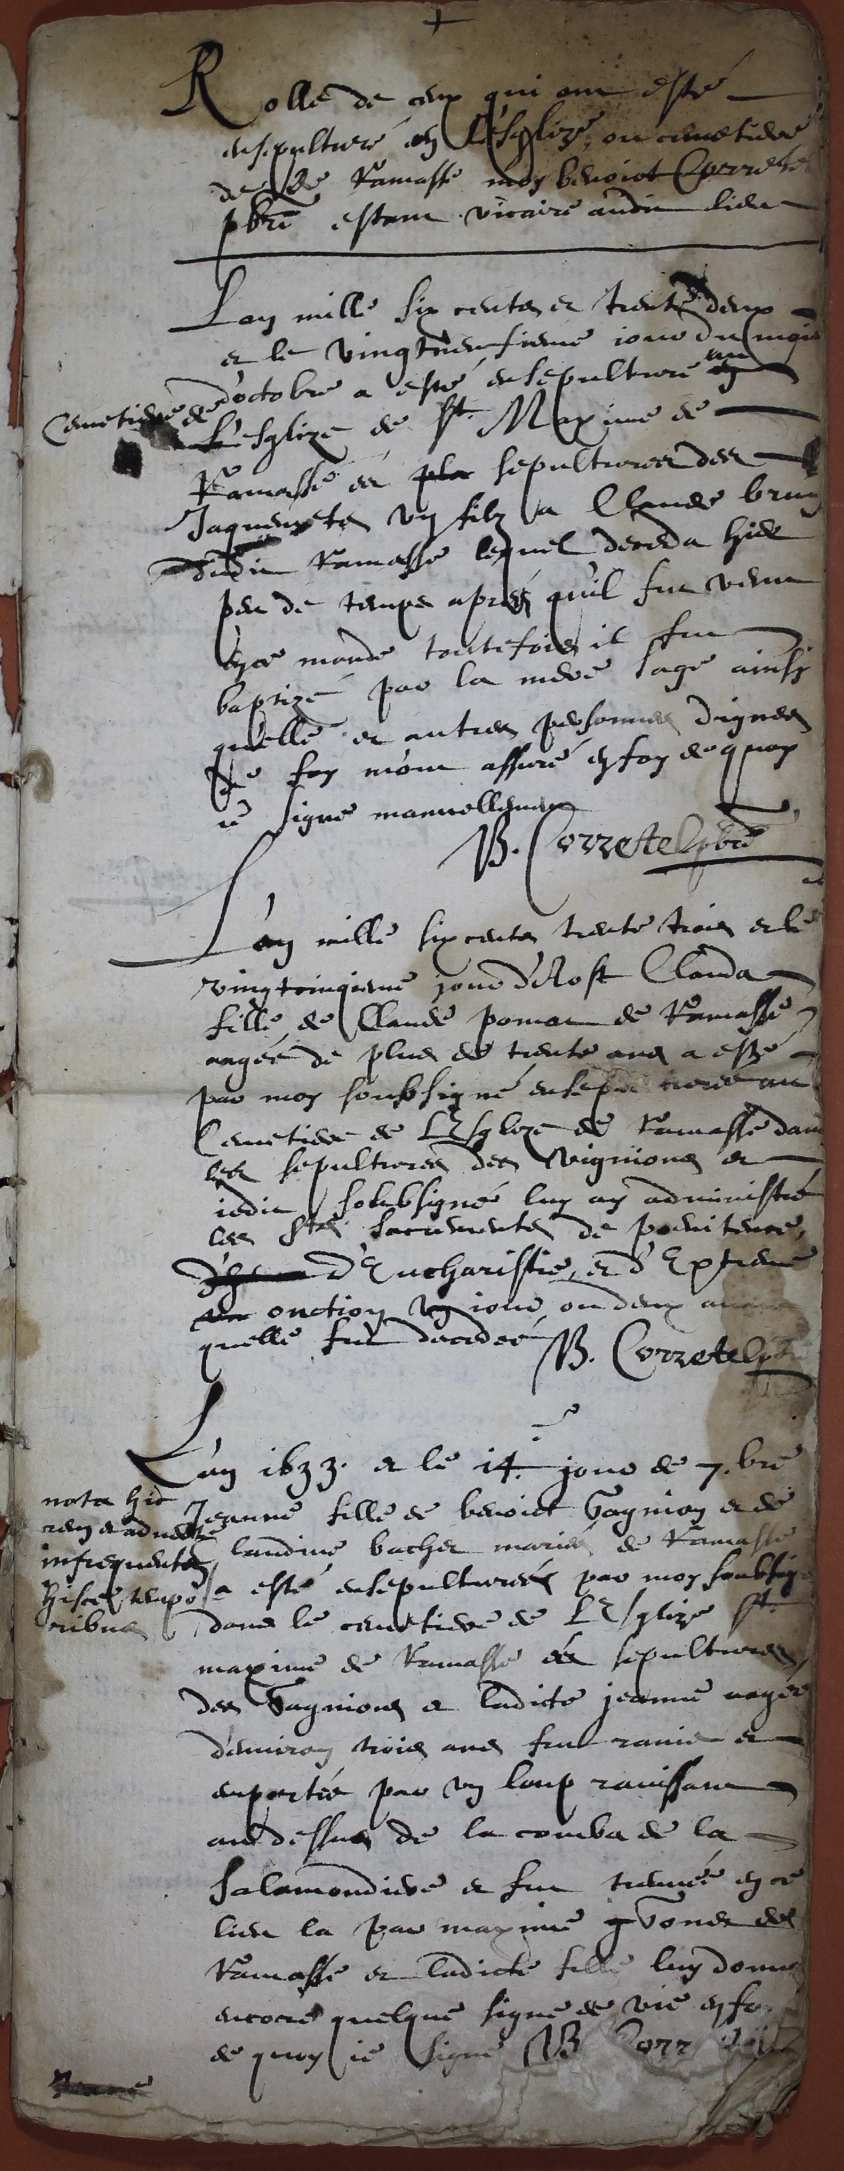 Rolle de ceux qui ont esté
ensepulturé en L'Esglize, ou cemetiere
de Ramasse moy benoict Corretel
pbrē estant vicaire audit lieu
L'an mille six cents et trente deux
et le vingtneufieme iour du mois
d'octobre a esté ensepulturé au
Cemetiere de
L'esglize de St. Maxime de
Ramasse és sepultures des
Jaquemetes un filz a Claude brun
dudit Ramasse lequel deceda hier
peu de temps apres qu'il fut venu
en ce monde toutefois il fut
baptizé par la mere sage ainsy
qu'elle et autres personnes dignes
de foy m'ont assuré en foy de quoy
ie signe manuellement
B. Corretel pbrē
L'an mille six cents trente trois et le
vingtcinqieme iour d'Aost Clauda
fille de Claude pomat de Ramasse
aagée de plus de trente ans a esté
par moy soubsigné ensepulturée au
Cemetiere de L'Esglize de Ramasse dans
les sepultures des vignions et
iedit soubsigné luy ay administré
les Sts sacrements de poenitence,
d'Eucharistie, et d'Extreme
onction un iour ou deux avant
quelle fut decedée B. Corretel pbrē
L'an 1633. et le 14. jour de 7.bre
Jeanne fille de benoict Gagnion et de
Claudine bachet mariés de Ramasse
a esté ensepulturée par moy soubsigné
dans le cemetiere de L'Esglize St.
maxime de Ramasse és sepultures
des Gagnions et ladicte jeanne aagée
d'environ trois ans fut ravie et
enportée par un loup ravissant
au dessus de la comba de la
Salamondiere et fut treuvée en ce
lieu la par maxime gvonet de
Ramasse et ladicte fille luy donna
encores quelque signe de vie en foy
de quoy ie signe B. Corretel
nota hic
rem et advent
infrequentes
hisce tempo
ribus